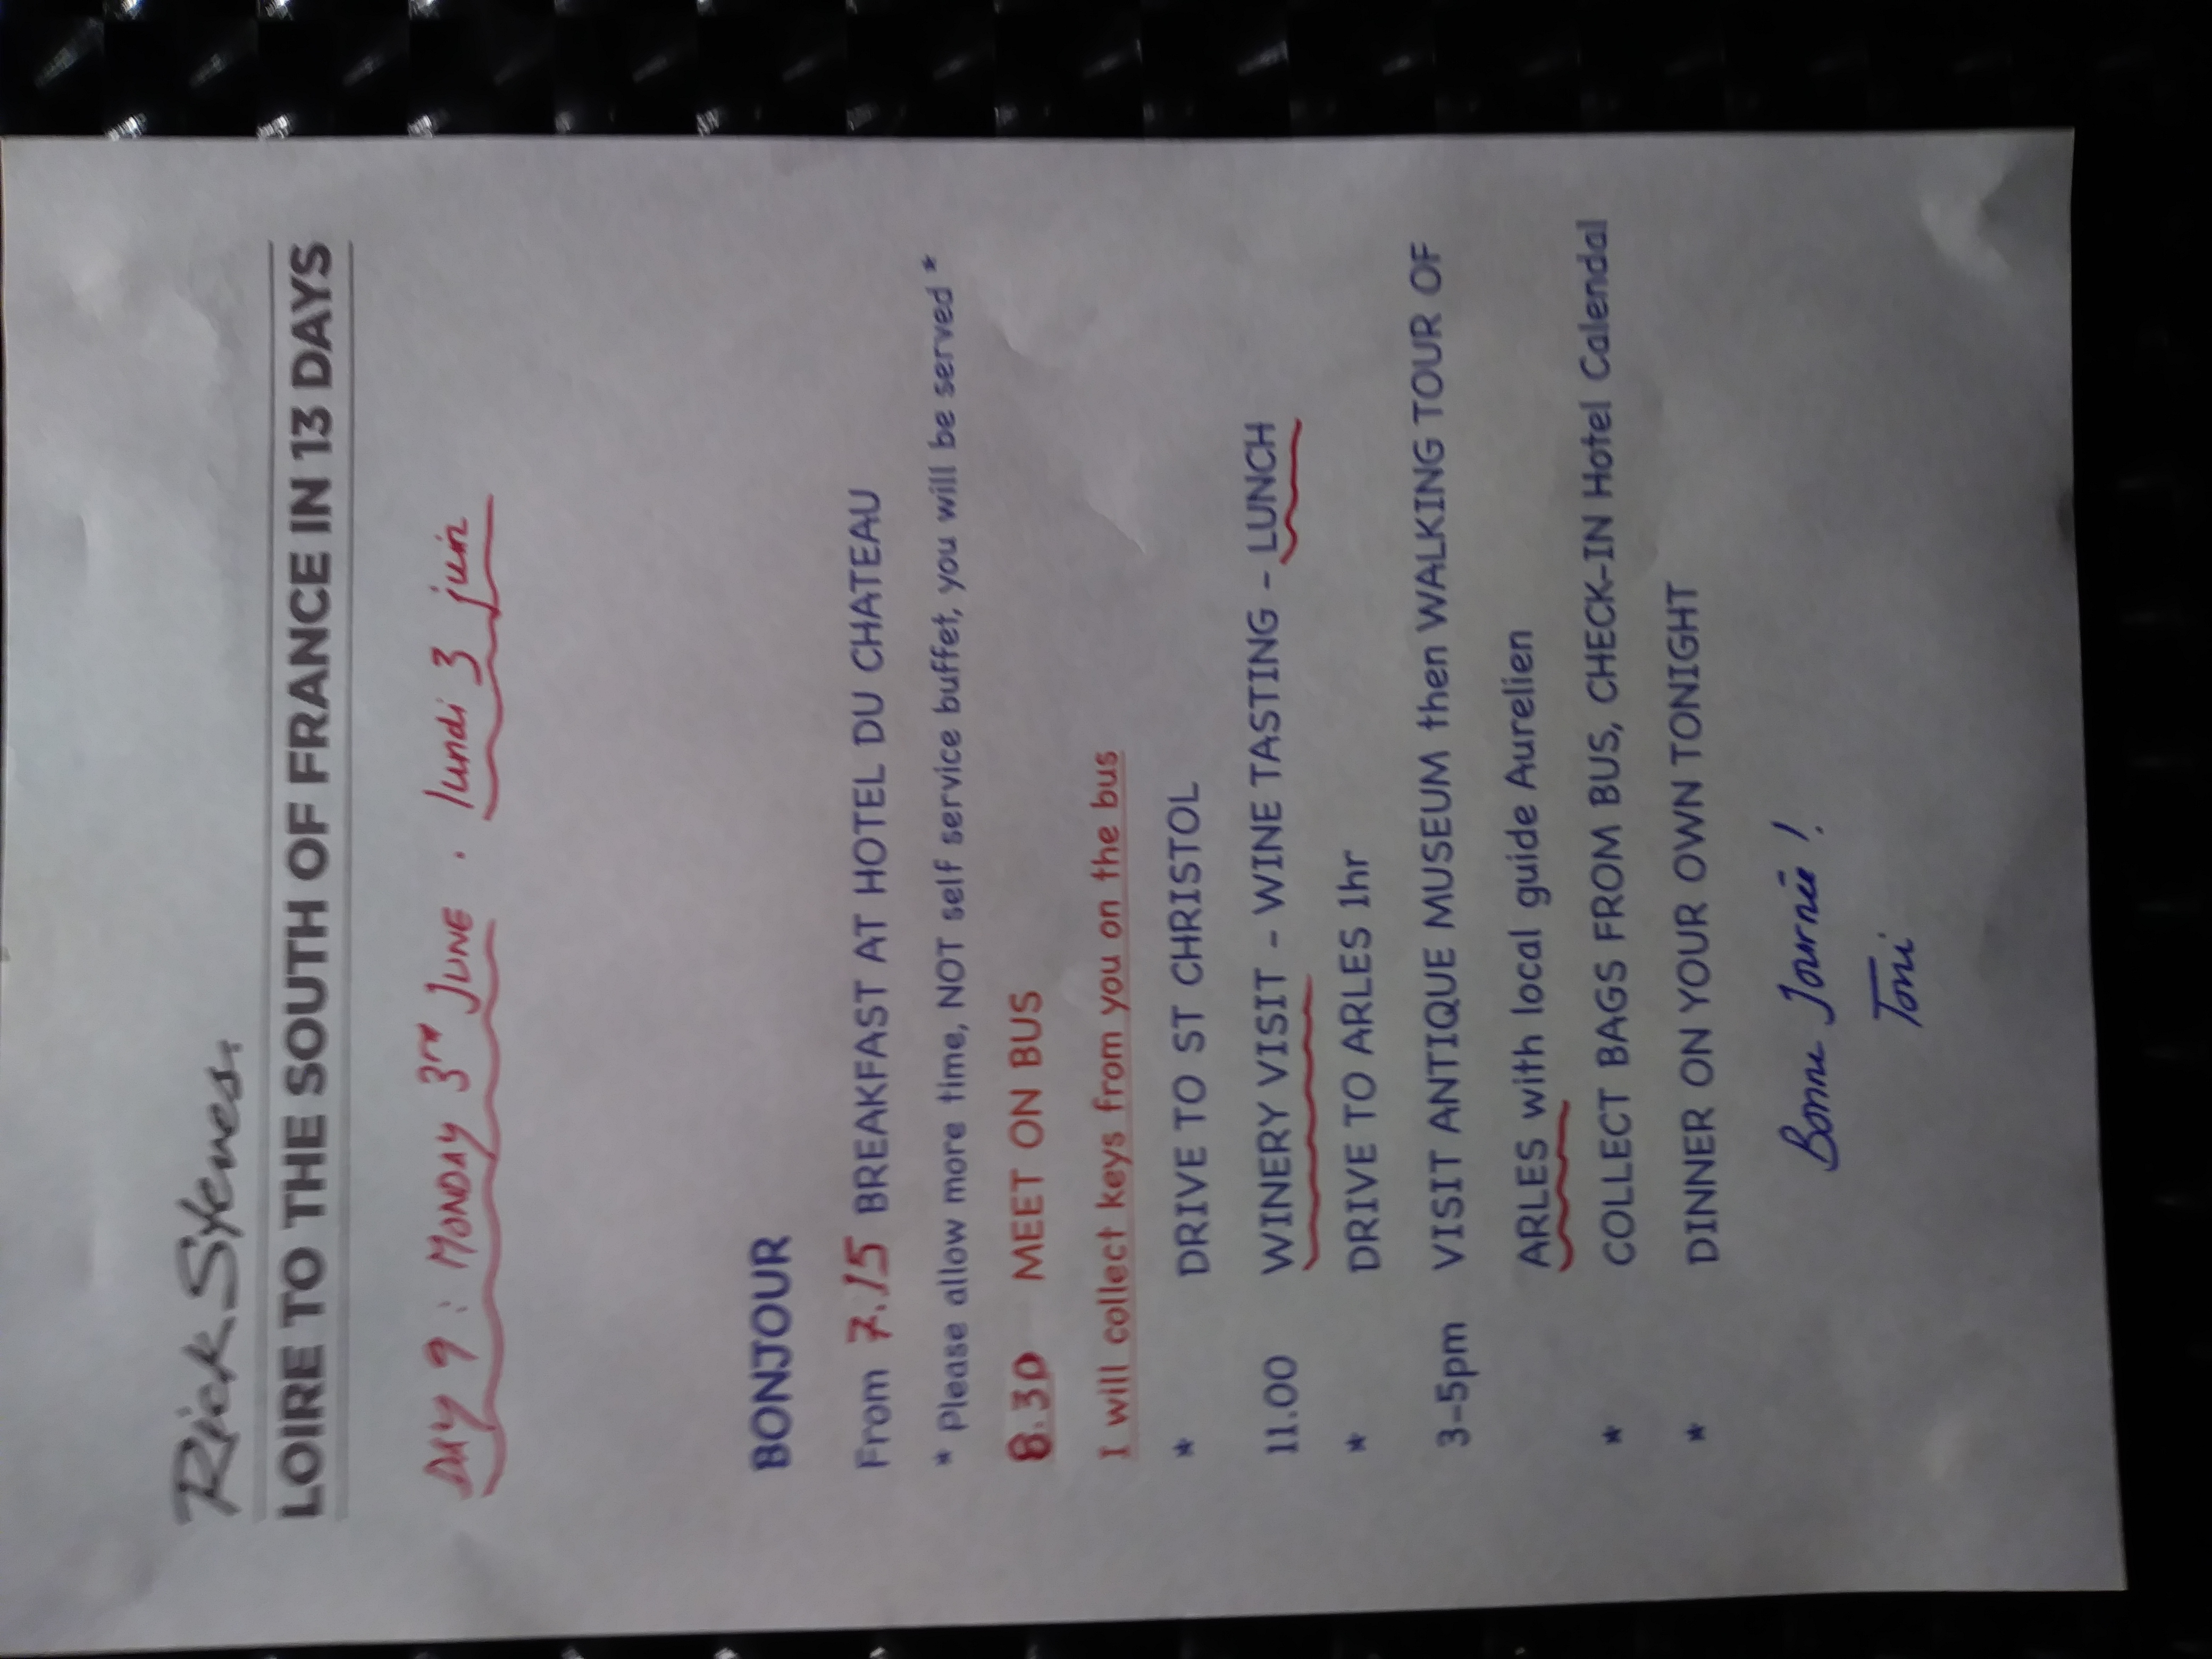 Rick Steves.
LOIRE TO THE SOUTH OF FRANCE IN 13 DAYS
DAY 9 : MONDAY 3rd JUNE . lundi 3 juin
BONJOUR
From 7.15 BREAKFAST AT HOTEL DU CHATEAU
* Please allow more time, NOT self service buffet, you will be served *
8.30 MEET ON BUS
I will collect keys from you on the bus
* DRIVE TO ST CHRISTOL
11.00 WINERY VISIT - WINE TASTING - LUNCH
* DRIVE TO ARLES 1hr
3-5pm VISIT ANTIQUE MUSEUM then WALKING TOUR OF
ARLES with local guide Aurelien
* COLLECT BAGS FROM BUS, CHECK-IN Hotel Calendal
* DINNER ON YOUR OWN TONIGHT
Bonne Journée !
Toni